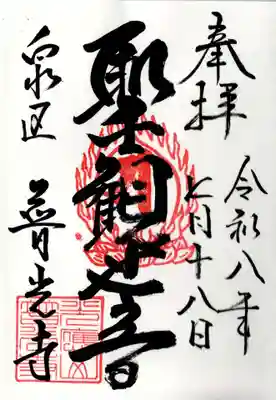 奉拝
令和八年
七月十八日
聖観世音
泉区
普光寺